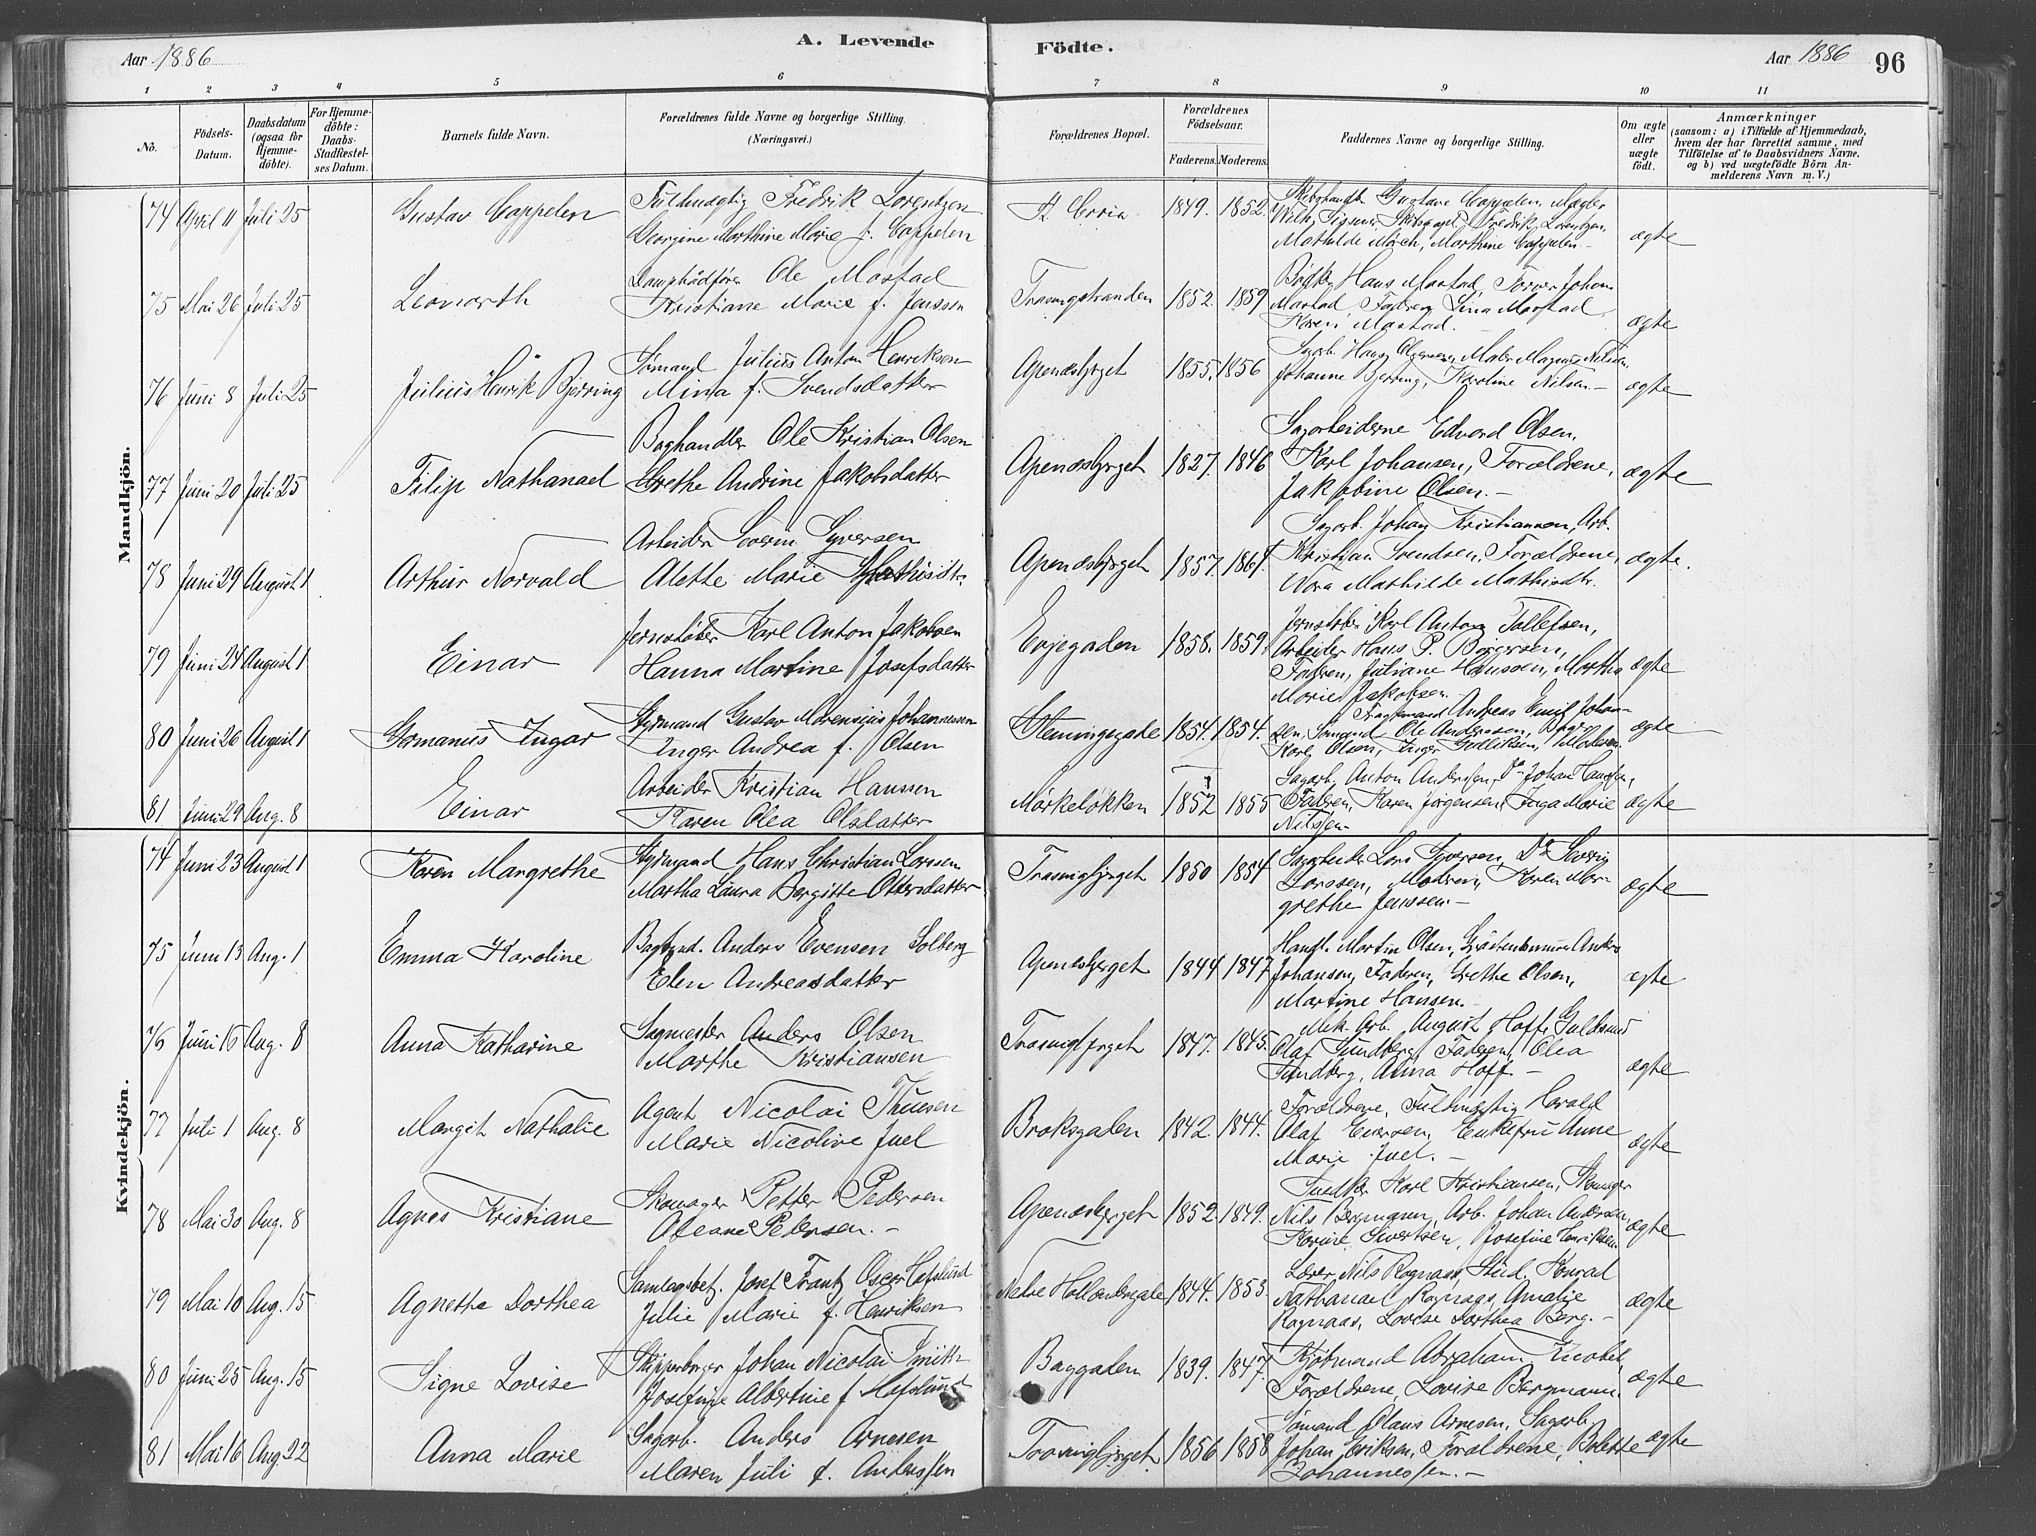 Aar 1886
A. Levende
Födte.
Aar 1886
96
1 2 3 4 5 6 7 8 9 10 11
No.
Födsels-Datum.
Daabsdatum (ogsaa for Hjemmedöbte).
For Hjemmedöbte: Daabs-Stadfæstelses Datum.
Barnets fulde Navn.
Forældrenes fulde Navne og borgerlige Stilling. (Næringsvei.)
Forældrenes Bopæl.
Forældrenes Födselsaar.
Faderens. Moderens.
Faddernes Navne og borgerlige Stilling.
Om ægte eller uægte födt.
Anmærkninger
(saasom: a) i Tilfælde af Hjemmedaab, hvem der har forrettet samme, med Tilföielse af to Daabsvidners Navne, og b) ved uægtefödte Börn Anmelderens Navn m. V.)
Mandkjön.
74 April 11 Juli 25 Gustav Cappelen Fuldmægtig Fredrik Lorentzen
Georgine Marthine Marie f. Cappelen
1849. 1852.
Mathilde Mörch, Marthine Cappelen.-
ægte
75 Mai 26 Juli 25 Leonarth Dampbådförer Ole Mastad
Kristiane Marie f. Jenssen
Trosvigstranden 1852. 1859
Hans Mastad, Johan
Mastad, Fadren, Lina Mastad
Karen Mastad.
ægte
76 Juni 8 Juli 25 Julius Henrik Bjerring Sömand Julius Anton Henriksen
Mina f. Svendsdatter
Apenæsbjrget 1855. 1856
Johanne Bjerring, Karoline Nilsen.-
ægte
77 Juni 20 Juli 25 Filip Nathanael Boghandler Ole Kristian Olsen
Grethe Andrine Jakobsdatter
Apenæsbjrget 1827. 1846
Sagarbeiderne Edvard Olsen,
Karl Johansen, Forældrene,
Jakobine Olsen.-
ægte
78 Juni 29 August 1 Arthur Norvald Arbeider Severin Syversen
Alette Marie Mathisdtr.
Apenæsbjrget 1857. 1861.
Sagarb. Johan Kristiansen, Arb.
Kristian Svendsen, Forældrene,
Nora Mathilde Mathisdtr.
ægte.
79 Juni 24 August 1 Einar Jernstöber Karl Anton Jakobsen
Hanna Martine Josefsdatter
Evjegaden 1858. 1859
Jernstöber Karl Anton Tollefsen,
Arbeider Hans P. Börgersen,
Fadren, Juliane Hanssen, Martha
Marie Jakobsen.
ægte
80 Juni 26 August 1 Germanus Ingar Styrmand Gustav Johannessen
Inger Andrea f. Olsen
1854. 1854.
Andreas Emil Johan-
sen, Sömand Ole Anderssen,
Karl Olsen, Inger Gulliksen, Modren.
ægte
81 Juni 29 Aug. 8 Einar Arbeider Kristian Hanssen
Karen Olea Olsdatter
Mörkelökken 1852 1855
Sagarb. Anton Anderssen, Do Johan Hanssen,
Fadren, Karen Jörgensen, Inga Marie
Nilssen.
ægte
Kvindekjön.
74 Juni 23 August 1 Karen Margrethe Styrmand Hans Christian Larssen
Martha Laura Bergitte Ottersdatter
Trosvigbjrget 1850 1854
Sagarbeider Lars Syversen, Do Severin
Larssen, Modren, Karen Mar-
grethe Jenssen.-
ægte
75 Juni 13 Aug. 1 Emma Karoline Anders Evensen Solberg
Elen Andreasdatter
Apenæsbjerget 1844 1847
Handl. Martin Olsen, Anders
Johansen, Faderen, Grethe Olsen,
Martine Hansen.-
ægte
76 Juni 15 Aug. 8 Anna Katharine Sagmester Anders Olsen
Marthe Kristiansen
1847. 1845.
Mek. Arb. August Hoff, Guldsmed
Olaf Sundberg, Faderen, Olea
Sundberg, Anna Hoff.-
ægte
77 Juli 1 Aug. 8 Margit Nathalie Agent Nicolai Thuesen
Marie Nicoline Juel
Broksgaden 1842. 1844.
Forældrene, Fuldmægtig Harald
Olaf Eversen, Enkefru Anne
Marie Juel.-
ægte
78 Mai 30 Aug. 8 Agnes Kristiane Skomager Petter Pedersen
Oleane Pedersen.-
Apenæsbjerget 1852 1849.
Snedker Karl Kristiansen, Skomager
Nils Bergmann, Arb. Johan Andersen,
Karine Sivertsen, Josefine Henriksen.
ægte
79 Mai 10 Aug. 15 Agnethe Dorthea Samlagsbet. Josef Frantz Oscar Hafslund
Julie Marie f. Henriksen
1844. 1853.
Lærer Nils Rognaas, Stud. Konrad
Nathanael Rognaas, Amalie
Rognaas, Lovise Dorthea Berg.-
ægte
80 Juni 25 Aug. 15 Signe Lovise Skipperborger Johan Nicolai Smith
Josefine Albertine f. Hafslund
Baggaden 1839. 1847.
Kjöbmand Abraham Knobel,
Forældrene, Lovise Bergmann.
ægte
81 Mai 16 Aug. 22 Anna Marie Sagarb. Anders Arnesen
Maren Juli f. Anderssen
Trosvigbjrget 1856 1858
Sömand Olaus Arnesen, Sagarb.
Johan Eriksen, Forældrene, Bolette
Johannessen.-
ægte